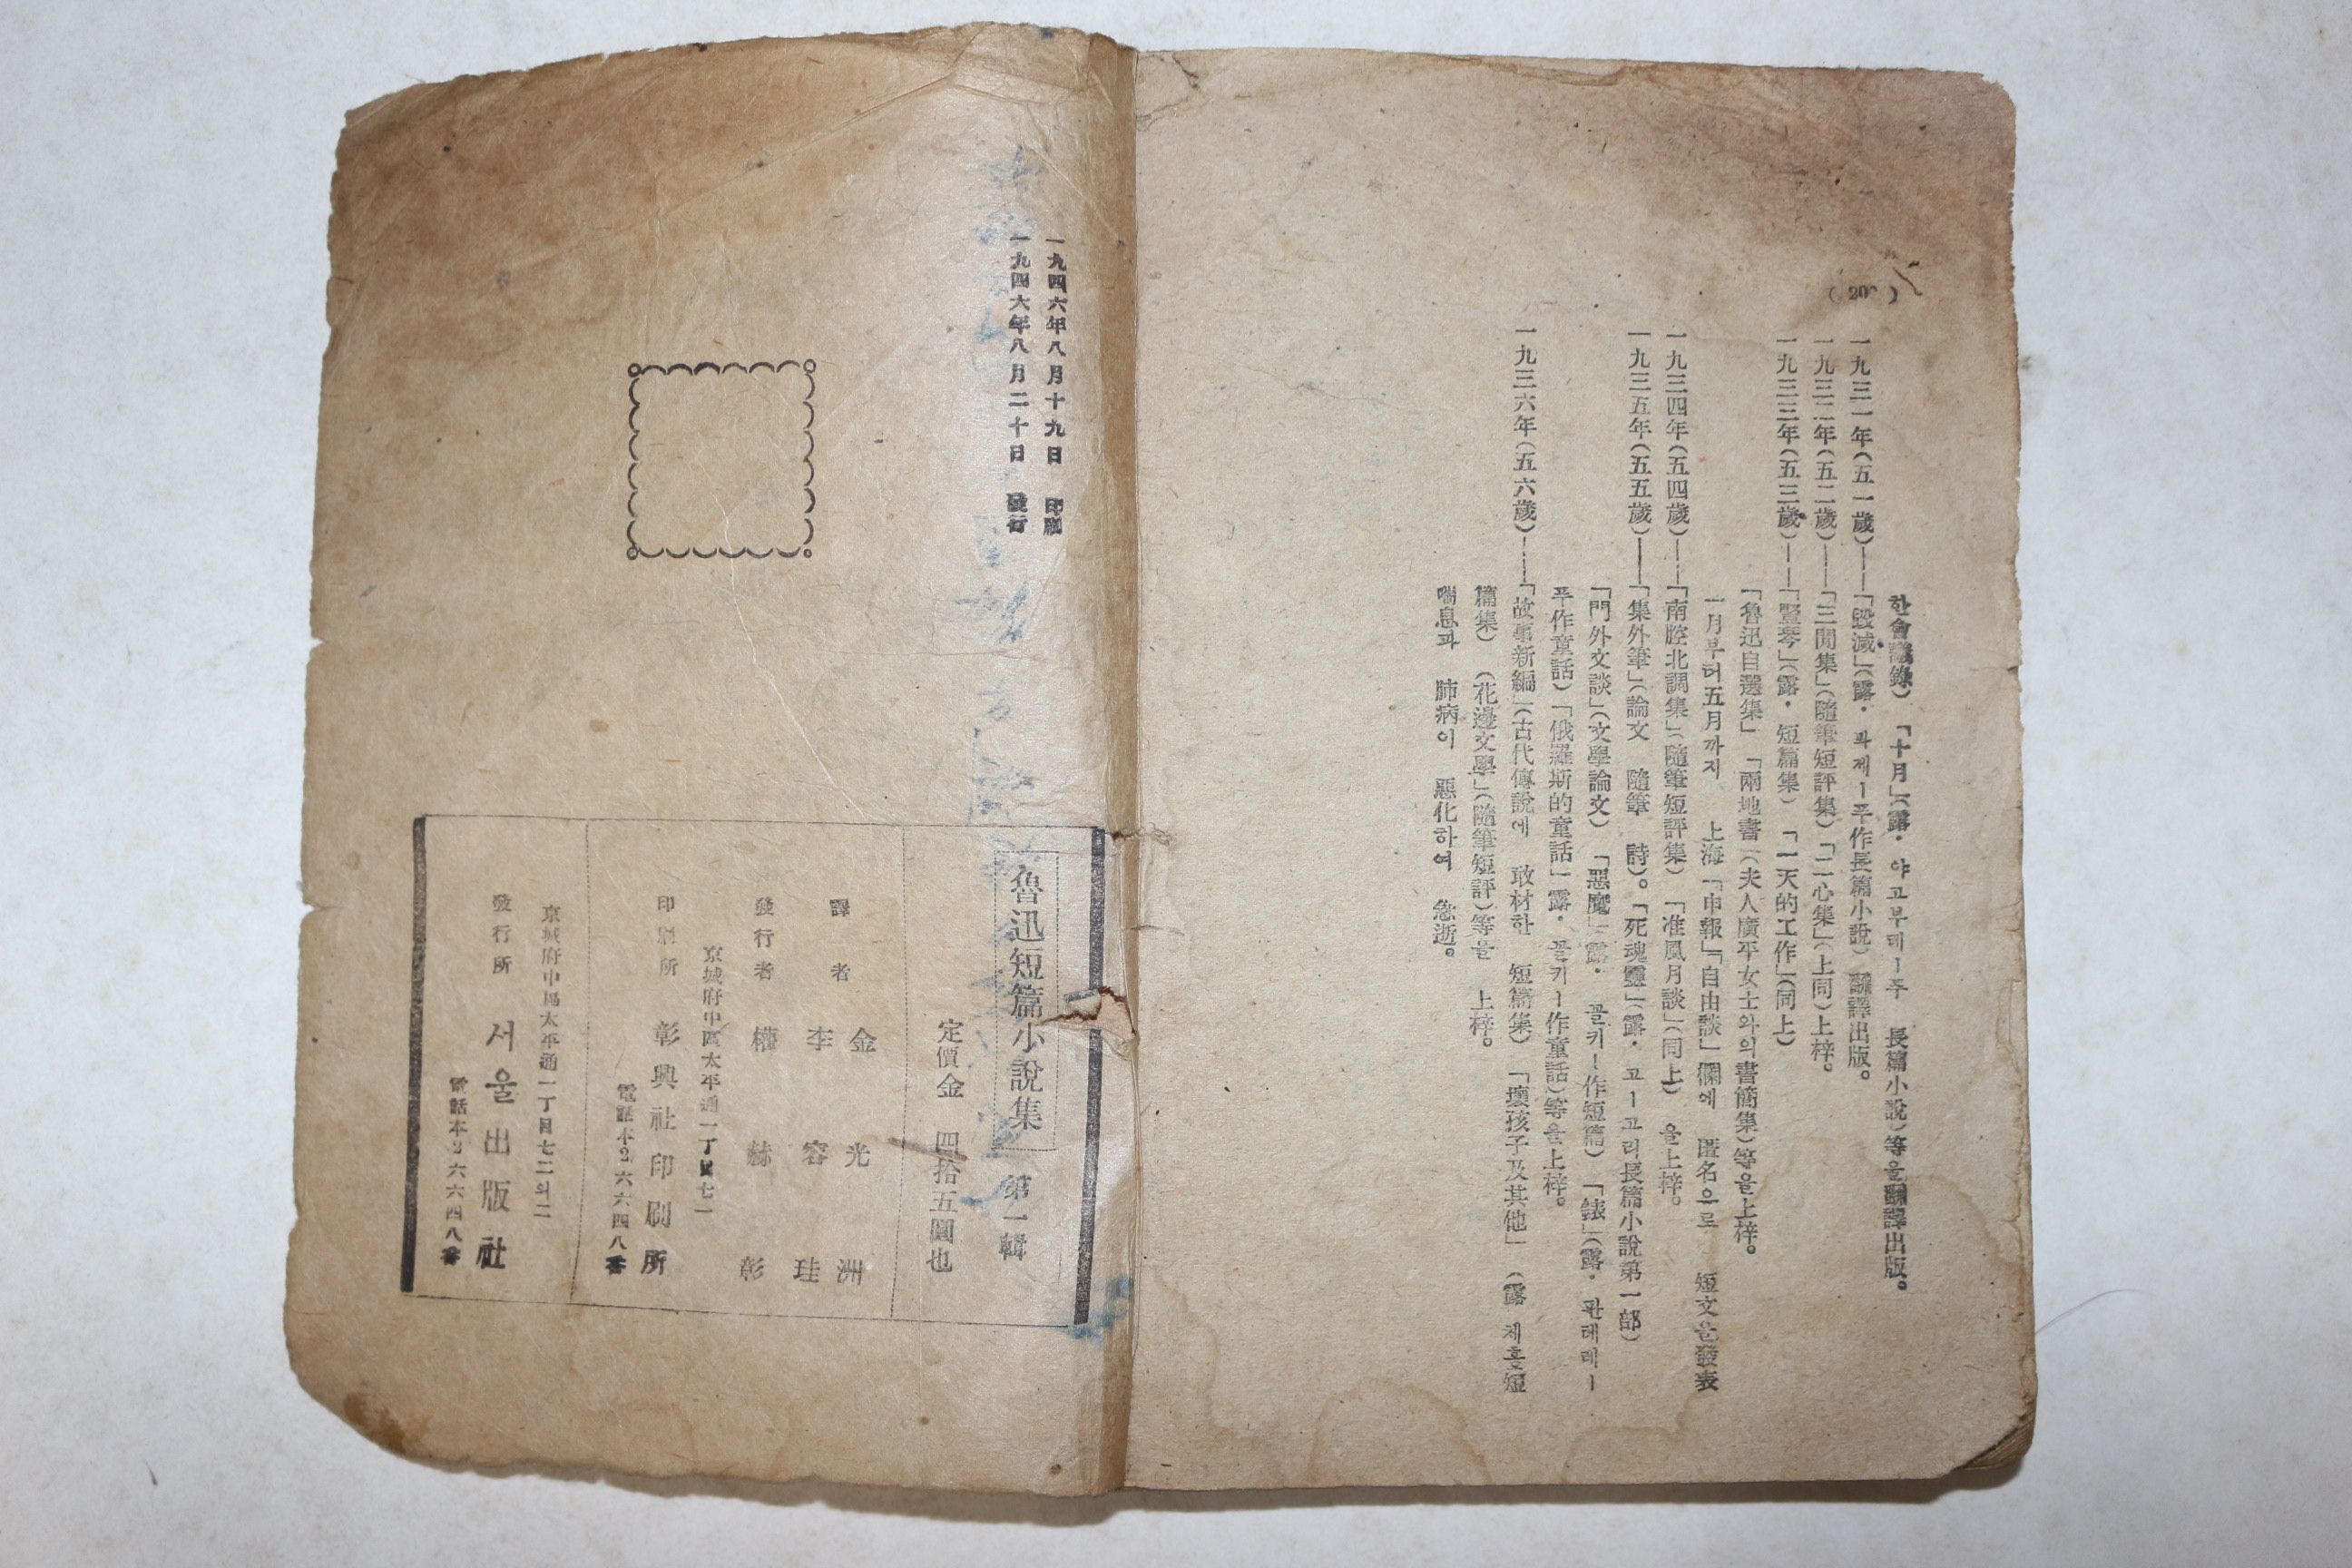 한會議錄) 「十月」(露・야고부레ー주 長篇小說)等을飜譯出版。
一九三一年(五一歲)——「毁滅」(露・콰제ー푸作長篇小說)飜譯出版。
一九三二年(五二歲)——「三閒集」(隨筆短評集)「二心集」(上同)上梓。
一九三三年(五三歲)——「豎琴」(露・短篇集) 「一天的工作」(同上)
「魯迅自選集」 「兩地書」(夫人廣平女士와의書簡集)等을上梓。
一月부터五月까지 上海「申報」「自由談」欄에 匿名으로 短文을發表
一九三四年(五四歲)——「南腔北調集」(隨筆短評集) 「准風月談」(同上) 을上梓。
一九三五年(五五歲)——「集外筆」(論文 隨筆 詩)。「死魂靈」(露・고ー고리長篇小說第一部)
「門外文談」(文學論文) 「惡魔」(露・꼴키ー作短篇) 「錶」(露・판테레ー
푸作童話)「俄羅斯的童話」露・꼴키ー作童話)等을上梓。
一九三六年(五六歲)——「故事新編」(古代傳說에 敢材한 短篇集) 「壞孩子及其他」 (露 체홒短
篇集) (花邊文學」(隨筆短評)等을 上梓。
喘息과 肺病이 惡化하여 急逝。
一九四六年八月十九日 印刷
一九四六年八月二十日 發行
魯迅短篇小說集 第一輯
定價金 四拾五圓也
譯者 金光洲
李容珪
發行者 權赫彰
京城府中區太平通一丁目七二
印刷所 彰興社印刷所
電話本局六六四八番
京城府中區太平通一丁目七二의二
發行所 서울出版社
電話本局六六四八番